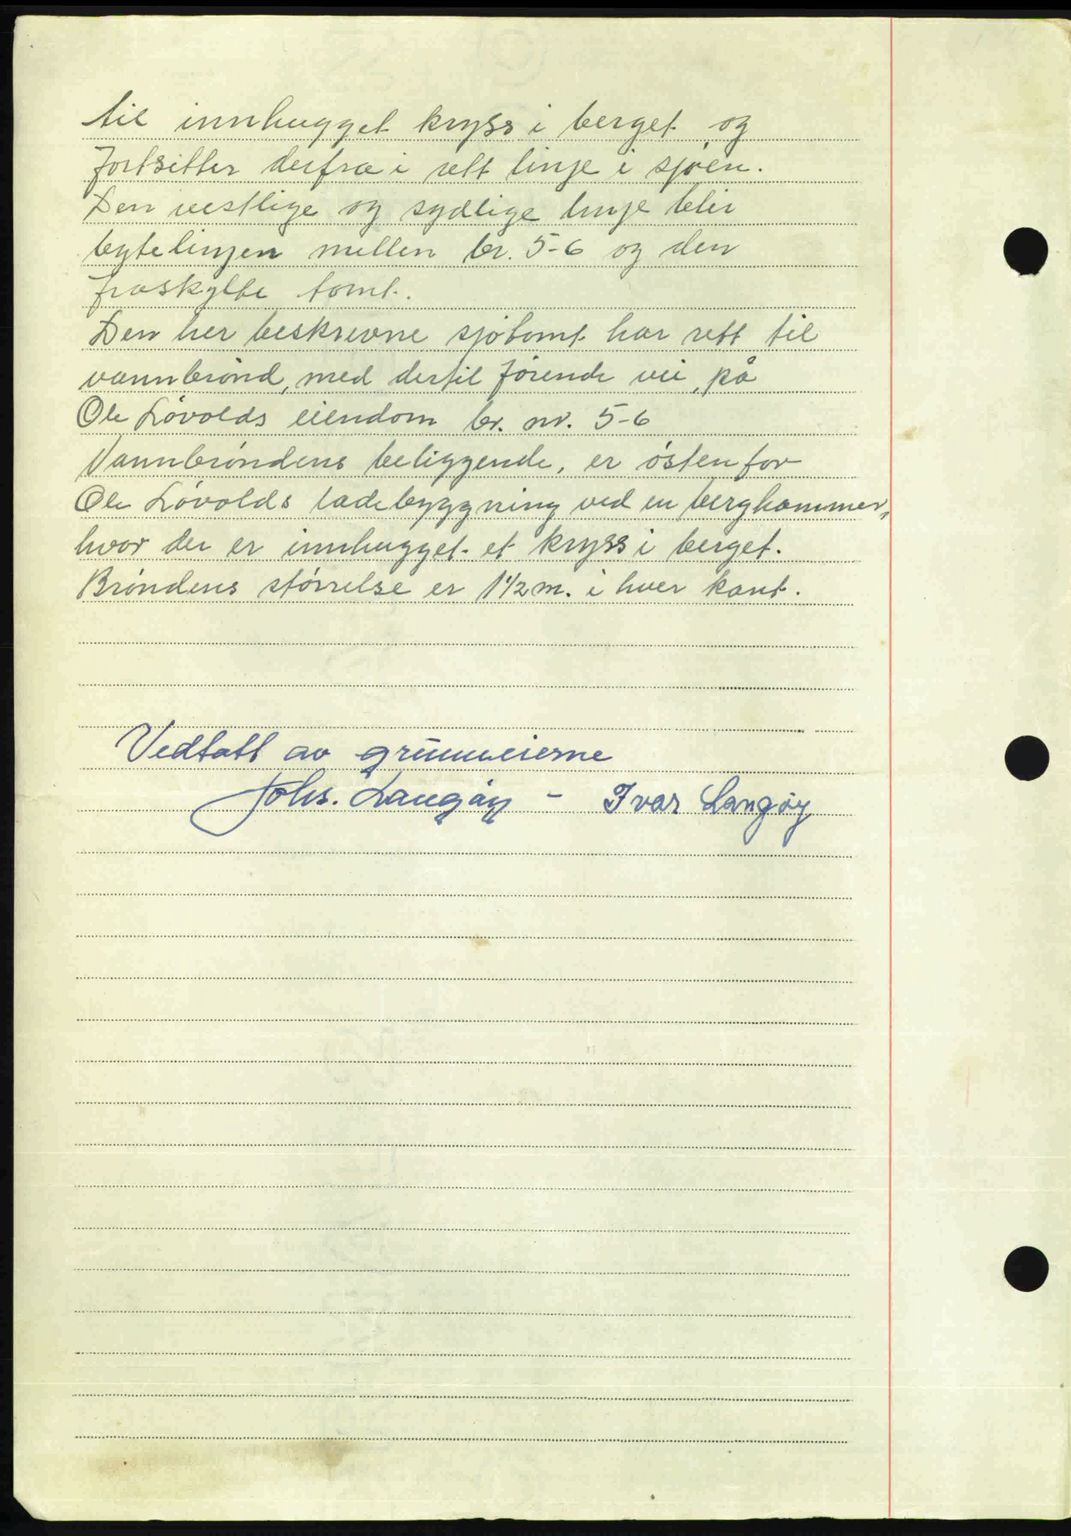 til innhugget kryss i berget og
fortsetter derfra i rett linje i sjøen.
Den vestlige og sydlige linje blir
bytelinjen mellem br. 5-6 og den
fraskylte tomt.
Den her beskrevne sjøtomt har rett til
vannbrønd, med dertil førende vei, på
Ole Løvolds eiendom br. nr. 5-6
Vannbrøndens beliggende, er østenfor
Ole Løvolds ladebyggning ved en berghammer,
hvor der er innhugget et kryss i berget.
Brøndens størrelse er 1½ m. i hver kant.
Vedtatt av grunneierne
Johs. Langøy - Ivar Langøy